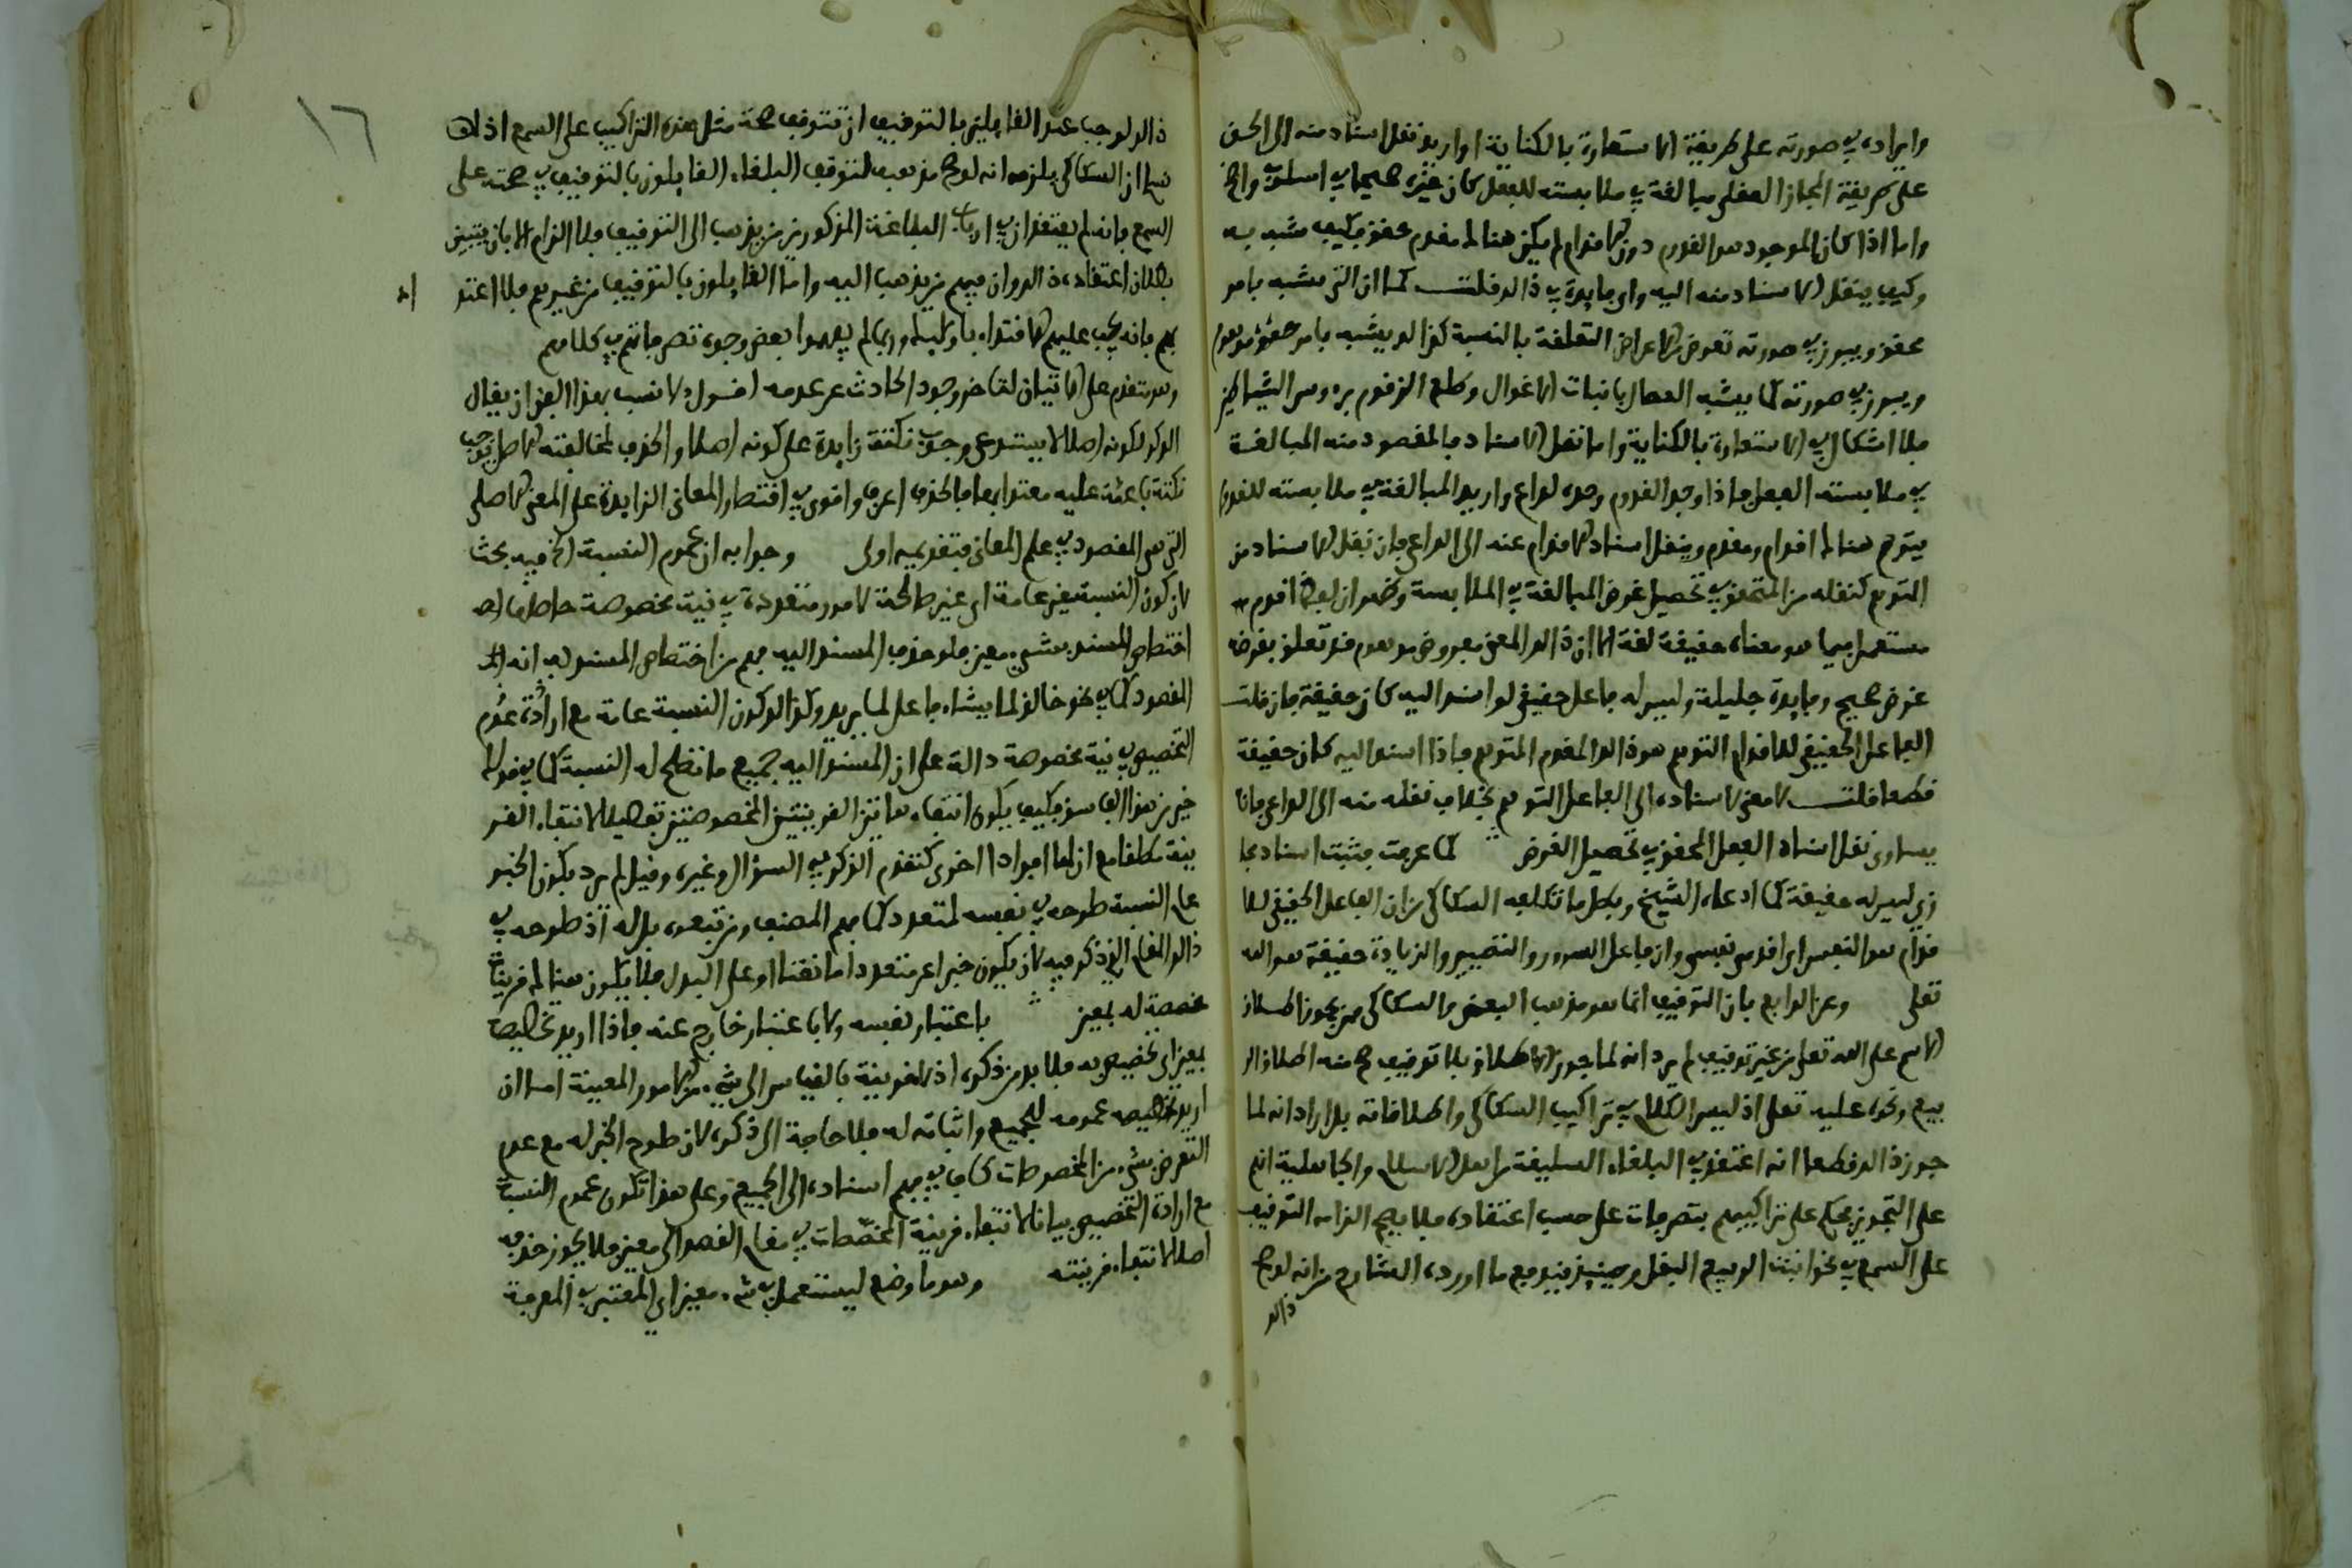 وايراده في صورته على طريقة الاستعارة بالكناية او اريد نقل اسناد منه الى الحق
على طريقة المجاز العقلي مبالغة في ملابسته للفعل كان عنده صحيحا في اسلوب واضح
واما اذا كان الموجود هو القدوم دون الاقدام لم يكن هنالك مقدم محقق فكيف مشبه به
وكيف ينقل الاسناد منه اليه واي فايدة في ذالك قلت كما ان الشيء يشبه بامر
محقق ويبرز في صورته تعوض الاعراض المتعلقة بالنسبة كذالك يشبه بامر موهوم
ويبرز في صورته كما يشبه النصال بانياب الاغوال وطلع الزقوم برءوس الشياطين
فلا اشكال في الاستعارة بالكناية واما نقل الاسناد فالمقصود منه المبالغة
في ملابسته الفعل فاذا وجد القدوم وحده لداع واريد المبالغة في ملابسته للقدوم
يتوهم هنالك اقدام ومقدم وينقل اسناد الاقدام عنه الى الداعي فان نقل الاسناد من
المتوهم كنقله من المتحقق في تحصيل غرض المبالغة في الملابسة وظهر ان لفظ اقدم
مستعمل فيما هو معناه حقيقة لغة الا ان ذالك المعنى مفروض موهوم قد تعلق بفرضه
غرض صحيح وفايدة جليلة وليس له فاعل حقيقي لو اسند اليه كان حقيقة فان قلت
الفاعل الحقيقي للاقدام المتوهم هو ذالك المقدم المتوهم فاذا اسند اليه كان حقيقة
قطعا قلت لا معنى لاسناده الى الفاعل المتوهم بخلاف نقله منه الى الداعي فانه
يساوي نقل اسناد الفعل المحقق في تحصيل الغرض كما عرفت فثبت اسناد مجا
زي ليس له حقيقة كما ادعاه الشيخ وبطل ما تكلفه السكاكي من ان الفاعل الحقيقي للا
قدام هو النفس اي اقدمني نفسي وان فاعل السرور والتصيير والزيادة حقيقة هو الله
تعلى وعن الرابع بان التوقيف انما هو مذهب البعض والسكاكي ممن يجوز اطلاق
الاسم على الله تعلى من غير توقيف لم يرد انه لما جوز الاطلاق بلا توقيف صح منه اطلاق الر
بيع ونحوه عليه تعلى اذ ليس الكلام في تراكيب السكاكي واطلاقاته بل اراد انه لما
جوز ذالك قطعا انه اعتقد في البلغاء السليقة من اهل الاسلام والجاهلية انهم
على التجويز يحكم على تراكيبهم بتصرفات على حسب اعتقاده فلا يصح الزامه التوقيف
على السمع في نحو انبت الربيع البقل وحينئذ يندفع ما اورده الشارح من انه لو صح
ذالك
١٦
ذالك لوجب عند القايلين بالتوقيف ان تتوقف صحة مثل هذه التراكيب على السمع اذ ذاك
نبه ان السكاكي يلزمه انه لو صح مذهبه لتوقف البلغاء القايلون بالتوقيف في صحته على
السمع فانه لم يعتقد ان في ارباب البلاغة المذكورين من يذهب الى التوقيف فلا الزام الا بان يتبين
بطلان اعتقاده ذالك وان فيهم من يذهب اليه واما القايلون بالتوقيف من غيرهم فلا اعتد
بهم فانه يجب عليهم الاقتداء باوليك وربما لم يفهموا بعض وجوه تصرفاتهم في كلامهم
وهو متقدم على الاتيان لتاخر وجود الحادث عن عدمه اقول الانسب بهذا الفن ان يقال
الذكر لكونه اصلا لا يستدعي وجوب نكتة زايدة على كونه اصلا والحذف لمخالفته الاصل يوجب
نكتة باعثة عليه معتدا بها فالحذف اعرف واقوى في اقتضاء المعاني الزايدة على المعنى الاصلي
التي هي المقصود في علم المعاني فتقديمه اولى وجوابه ان عموم النسبة الخ فيه بحث
لان كون النسبة غير عامة اي غير صالحة لامور متعددة في نية مخصوصة حاصله
اختصاص المسند بشيء معين فلو حذف المسند اليه فهم من اختصاص المسند به انه
المقصود كما في نحو خالق لما يشاء فاعل لما يريد وكذالك كون النسبة عامة مع ارادة عدم
التخصيص في نية مخصوصة دالة على ان المسند اليه جميع ما تصلح له النسبة كما في قولك
خير من هذا الفاسق فكيف يكون انتفاء هاتين القرينتين المخصوصتين تفصيلا لانتفاء القر
ينة مطلقا مع ان لها افرادا اخرى كتقدم الذكر في السؤال وغيره وقيل لم يرد بكون الخبر
عام النسبة طوحه في نفسه لمتعدد كما فهم المصنف ومن تبعه بل له
ذالك المقام الذي ذكر فيه لان يكون خبرا عن متعدد اما نقنا او على البدل فلا يكون هنالك قرينة
مخصصة له بمعين باعتبار نفسه ولا باعتبار خارج عنه فاذا اريد تخصيصه
بمعين اي تخصيص به فلا بد من ذكره اذ لا قرينة بالقياس الى شيء من الامور المعينة اما ان
اريد تخصيصه عمومه للجميع واثباته له فلا حاجة الى ذكره لان طوح الخبر له مع عدم
التعرض بشيء من المخصوصات كاف في فهم اسناده الى الجميع وعلى هذا تكون عموم النسبة
مع ارادة التخصيص بيانا لانتفاء قرينة المخصصات في مقام القصد الى معين فلا يجوز حذفه
اصلا لانتفاء قرينته وهو ما وضع ليستعمل في شيء معين اي المعتبر في المعرفة